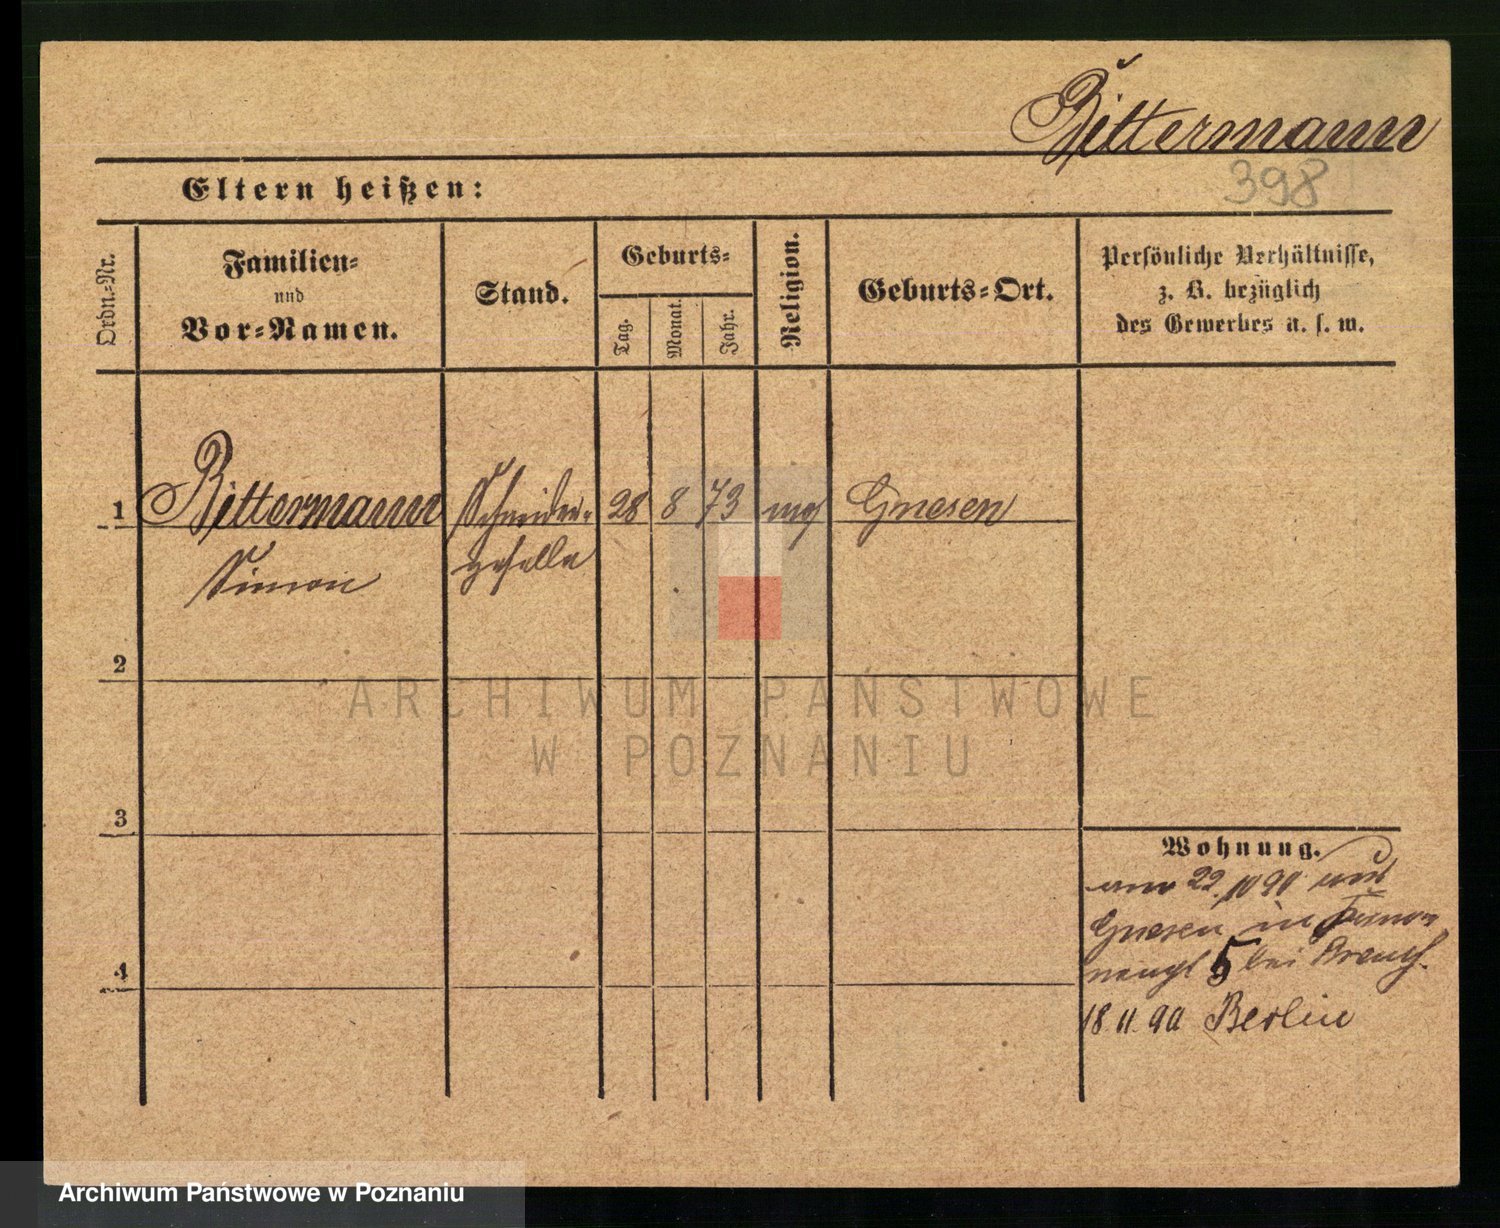 Bittermann
398
Eltern heißen:
Ordn.-Nr.
Familien-
und
Vor-Namen.
Stand.
Geburts-
Tag.
Monat.
Jahr.
Religion.
Geburts-Ort.
Persönliche Verhältnisse,
z. B. bezüglich
des Gewerbes u. s. w.
1 Bittermann Schneider- 28 8 73 mos Gnesen
Simon geselle
2
3
4
Wohnung.
22. 10 90
Gnesen in
5 bei
18. 11. 90 Berlin
ARCHIWUM PAŃSTWOWE
W POZNANIU
Archiwum Państwowe w Poznaniu